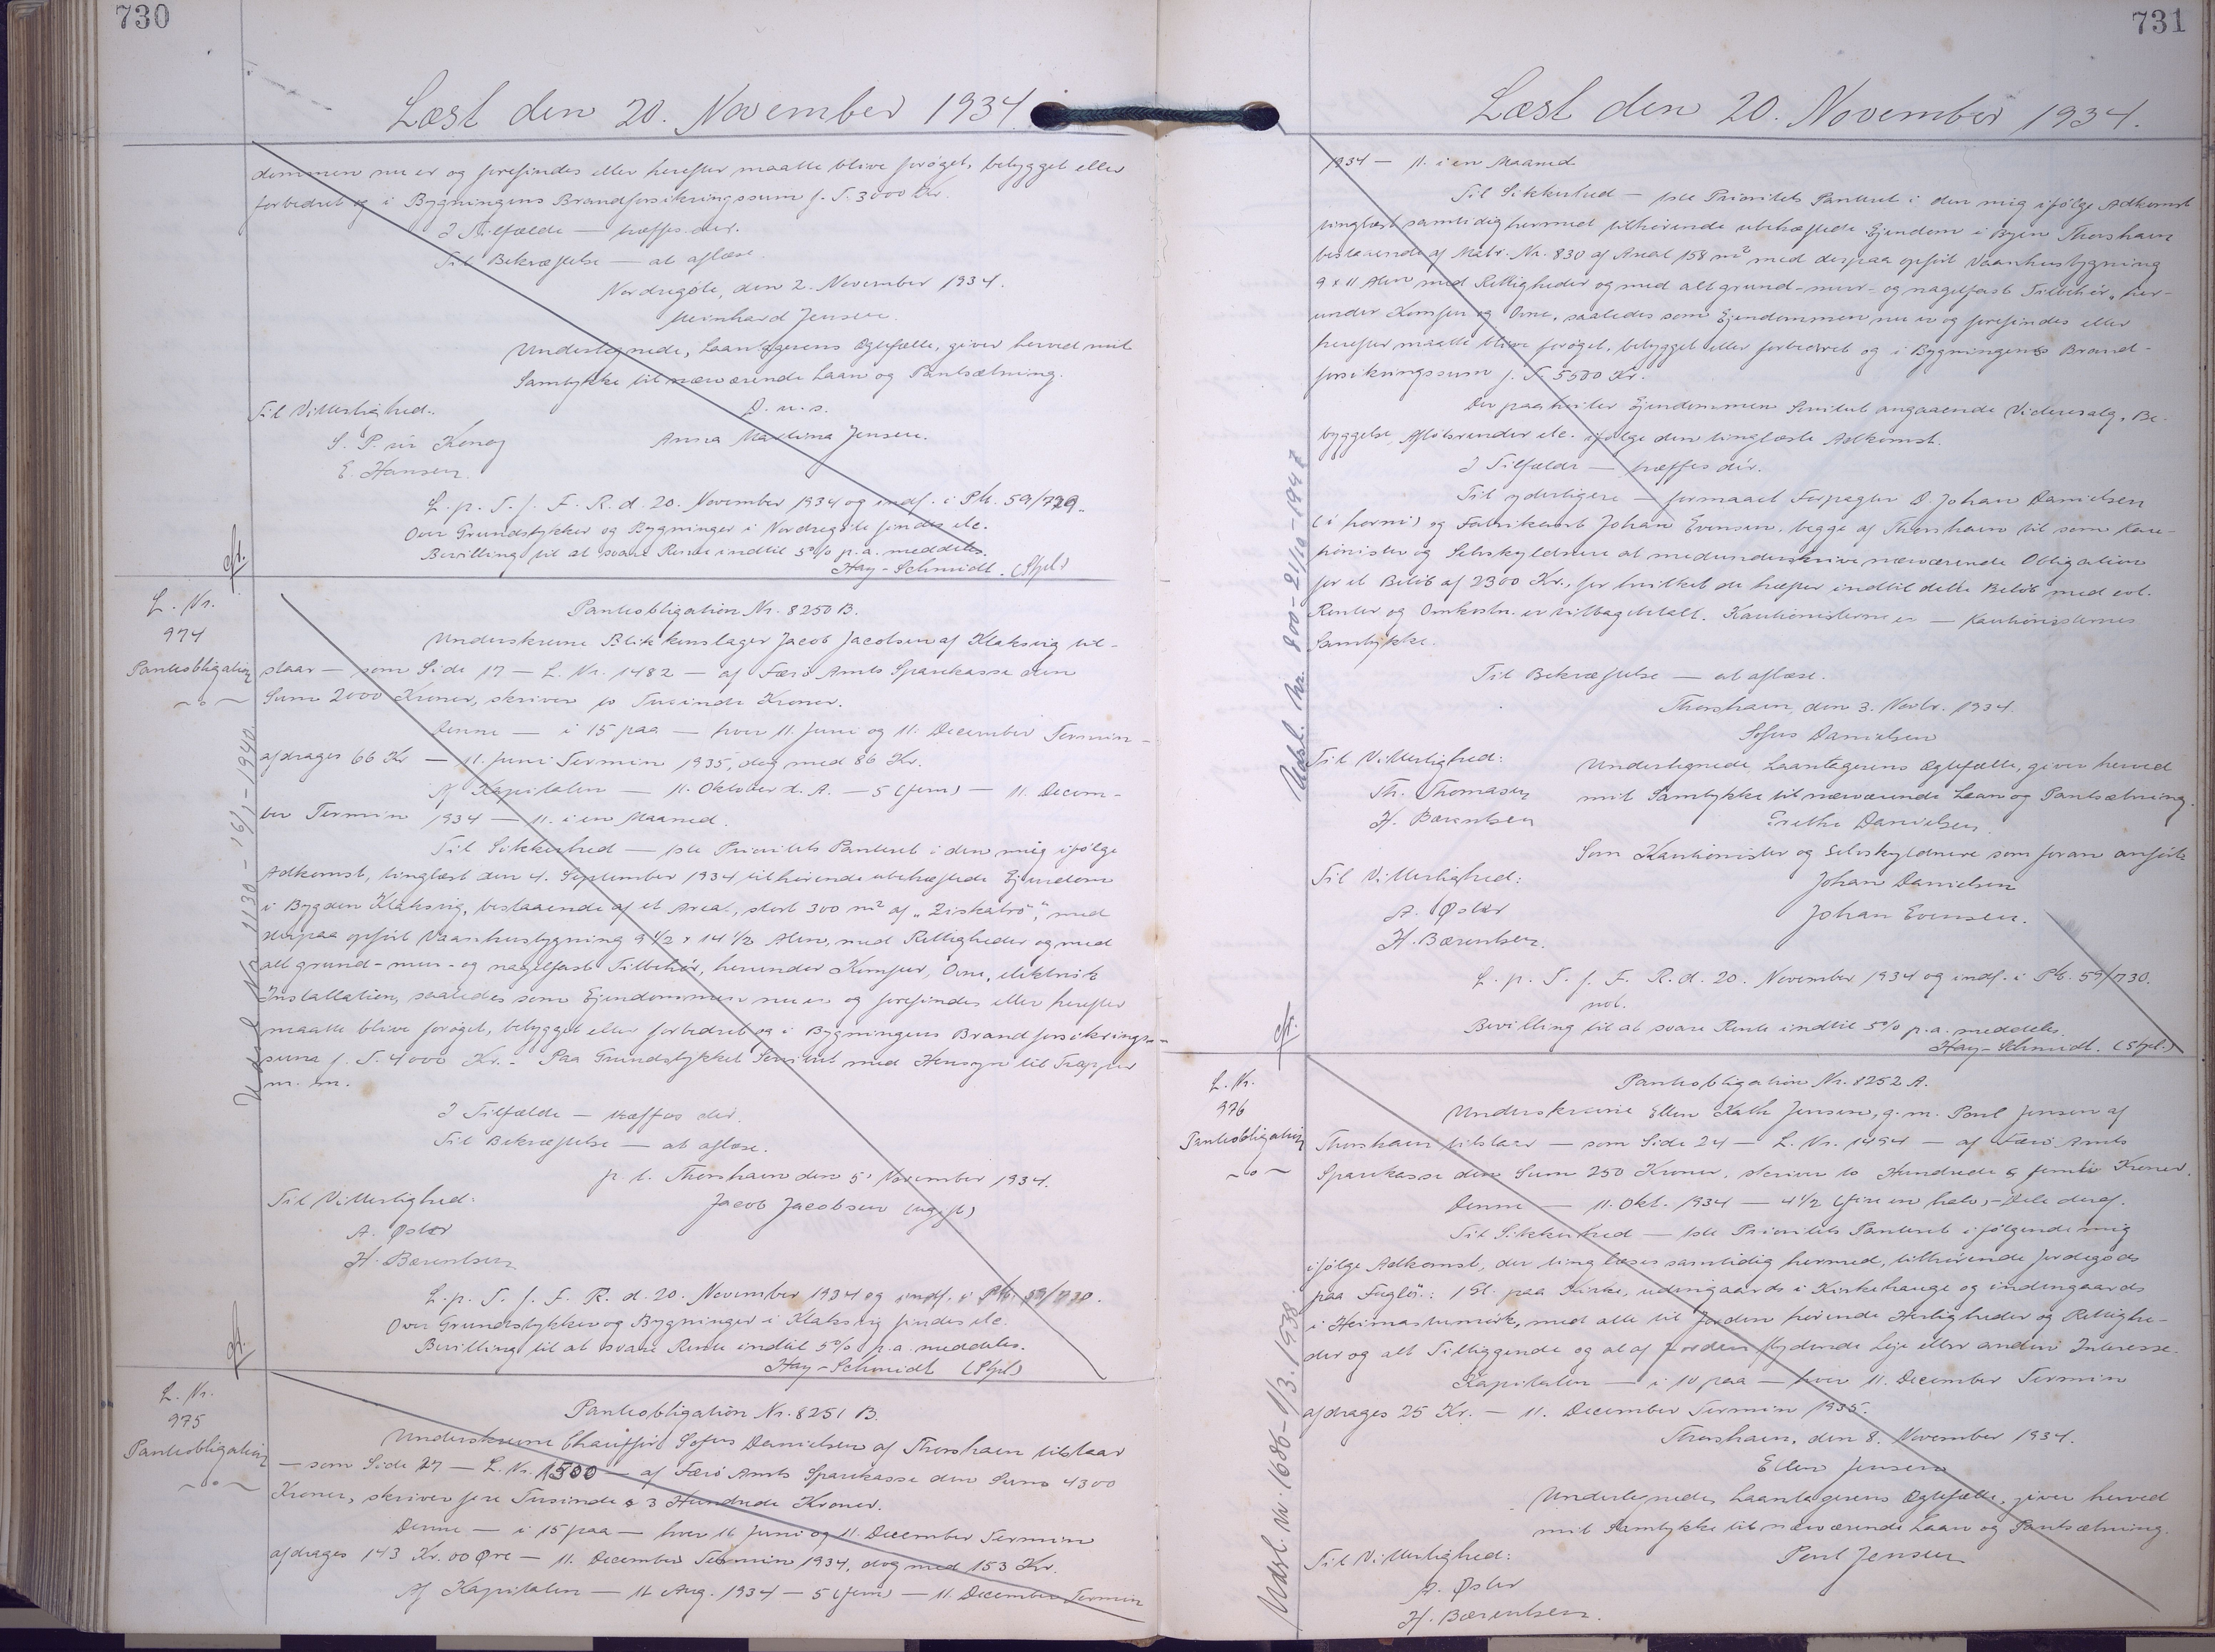 730
Læst den 20. November 1934.
dommen nu er og forefindes eller herefter maatte blive forøget, bebygget eller
forbedret og i Bygningens Brandforsikringssum f. T. 3000 Kr.
I Tilfælde — træffes der.
Til Bekræftelse — at aflæse.
Nordregöte, den 2. November 1934.
Meinhard Jensen.
Undertegnede, Laantagerens Ægtefælle, giver herved mit
Samtykke til nærværende Laan og Pantsætning.
D. u. s.
Til Vitterlighed:
Anna Martina Jensen.
S. P. úr Konoy
E. Hansen.
L. p. T. f. F. R. d. 20. November 1934 og indf. i Pb. 59/729.
Over Grundstykker og Bygninger i Nordregöte findes etc.
Bevilling til at svare Rente indtil 5% p. a. meddeles.
Hay-Schmidt. (Stpl.)
L. Nr.
974
Pantobligation
Pantobligation Nr. 8250 B.
Underskrevne Blikkenslager Jacob Jacobsen af Klaksvig til-
staar — som Side 17 — L. Nr. 1482 — af Færö Amts Sparekasse den
Sum 2000 Kroner, skriver to Tusinde Kroner.
Denne — i 15 paa — hver 11. Juni og 11. December Termin
afdrages 66 Kr — 11. Juni Termin 1935, dog med 86 Kr.
Af Kapitalen — 11. Oktober d. A. — 5 (fem) — 11. Decem-
ber Termin 1934 — 11. i en Maaned.
Til Sikkerhed — 1ste Prioritets Panteret i den mig ifölge
Adkomst, tinglæst den 4. September 1934 tilhörende ubehæftede Ejendom
i Bygden Klaksvig, bestaaende af et Areal, stort 300 m² af „Ziskatrö", med
derpaa opfört Vaanhusbygning 9 1/2 x 14 1/2 Alen, med Rettigheder og med
alt grund- mur- og nagelfast Tilbehör, herunder Komfur, Ovne, elektrisk
Installation, saaledes som Ejendommen nu er og forefindes eller herefter
maatte blive forøget, bebygget eller forbedret og i Bygningens Brandforsikrings-
sum f. T. 4000 Kr. - Paa Grundstykket Servitut med Hensyn til Trapper
m. m.
I Tilfælde — træffes der.
Til Bekræftelse — at aflæse.
p. t. Thorshavn den 5' November 1934.
Til Vitterlighed:
Jacob Jacobsen (ugift)
A. Öster
H. Bærentsen
L. p. T. f. F. R. d. 20. November 1934 og indf. i Pb. 59/730.
Over Grundstykker og Bygninger i Klaksvig findes etc.
Bevilling til at svare Rente indtil 5% p. a. meddeles.
Hay-Schmidt (Stpl)
Udsl. Nr. 1130 - 16/1 - 1940
L. Nr.
975
Pantobligation
Pantobligation Nr. 8251 B.
Underskrevne Chaufför Sofus Danielsen af Thorshavn tilstaar
— som Side 27 — L. Nr. 1500 — af Færö Amts Sparekasse den Sum 4300
Kroner, skriver fire Tusinde & 3 Hundrede Kroner.
Denne — i 15 paa — hver 11 Juni og 11. December Termin
afdrages 143 Kr. 00 Øre — 11. December Termin 1934, dog med 153 Kr.
Af Kapitalen — 11 Aug. 1934 — 5 (fem) — 11. December Termin
731
Læst den 20. November 1934.
1934 — 11. i en Maaned
Til Sikkerhed — 1ste Prioritets Panteret i den mig ifölge Adkomst
tinglæst samtidig hermed tilhörende ubehæftede Ejendom i Byen Thorshavn
bestaaende af Matr. Nr. 830 af Areal 158 m² med derpaa opfört Vaanhusbygning
9 x 11 Alen med Rettigheder og med alt grund- mur- og nagelfast Tilbehör, her-
under Komfur og Ovne, saaledes som Ejendommen nu er og forefindes eller
herefter maatte blive forøget, bebygget eller forbedret og i Bygningens Brand-
forsikringssum f. T. 5500 Kr.
Der paahviler Ejendommen Servitut angaaende Videresalg, Be-
byggelse, Aflöbsrender etc. ifölge den tinglæste Adkomst.
I Tilfælde — træffes dér.
Til yderligere — formaaet Forpagter D. Johan Danielsen
og Fabrikant Johan Evensen, begge af Thorshavn til som Kau-
tionister og Selvskyldnere at medunderskrive nærværende Obligation
for et Belöb af 2300 Kr., for hvilket de hæfter indtil dette Belöb med evt.
Renter og Omkostn. er tilbagebetalt. Kautionisterne er — Kautionisternes
Samtykke.
Til Bekræftelse — at aflæse.
Thorshavn, den 3. Novbr. 1934.
Sofus Danielsen
Til Vitterlighed:
Undertegnede, Laantagerens Ægtefælle, giver herved
Th. Thomasen
mit Samtykke til nærværende Laan og Pantsætning.
H. Bærentsen
Grethe Danielsen.
Som Kautionister og Selvskyldnere som foran anfört
Til Vitterlighed:
Johan Danielsen
A. Öster
Johan Evensen.
H. Bærentsen.
L. p. T. f. F. R. d. 20. November 1934 og indf. i Pb. 59/730.
not.
Bevilling til at svare Rente indtil 5% p. a. meddeles.
Hay-Schmidt. (Stpl.)
Udsl. nr. 800 - 21/10 - 1947
L. Nr.
976
Pantobligation
Pantobligation Nr. 8252 A.
Underskrevne Ellen Kath Jensen, g. m. Poul Jensen af
Thorshavn tilstaar — som Side 24 — L. Nr. 1494 — af Færö Amts
Sparekasse den Sum 250 Kroner, skriver to Hundrede & femti Kroner.
Denne — 11. Okt. 1934 — 4 1/2 (fire en halv) - Dele deraf.
Til Sikkerhed — 1ste Prioritets Panteret i fölgende mig
ifölge Adkomst, der tinglæses samtidig hermed, tilhörende Jordegods
paa Fuglö: 1 Gl. paa Kirke, udengaards i Kirkehauge og indengaards
i med alle til Jorden hörende Herligheder og Rettighe-
der og alt Tilliggende og al af Jorden flydende Leje eller anden Interesse.
Kapitalen — i 10 paa — hver 11. December Termin
afdrages 25 Kr. — 11. December Termin 1935.
Thorshavn, den 8. November 1934.
Ellen Jensen
Undertegnede, Laantagerens Ægtefælle, giver herved
mit Samtykke til nærværende Laan og Pantsætning.
Til Vitterlighed:
Poul Jensen
A. Öster
H. Bærentsen.
Udsl. nr. 1686 - 1/3. 1938